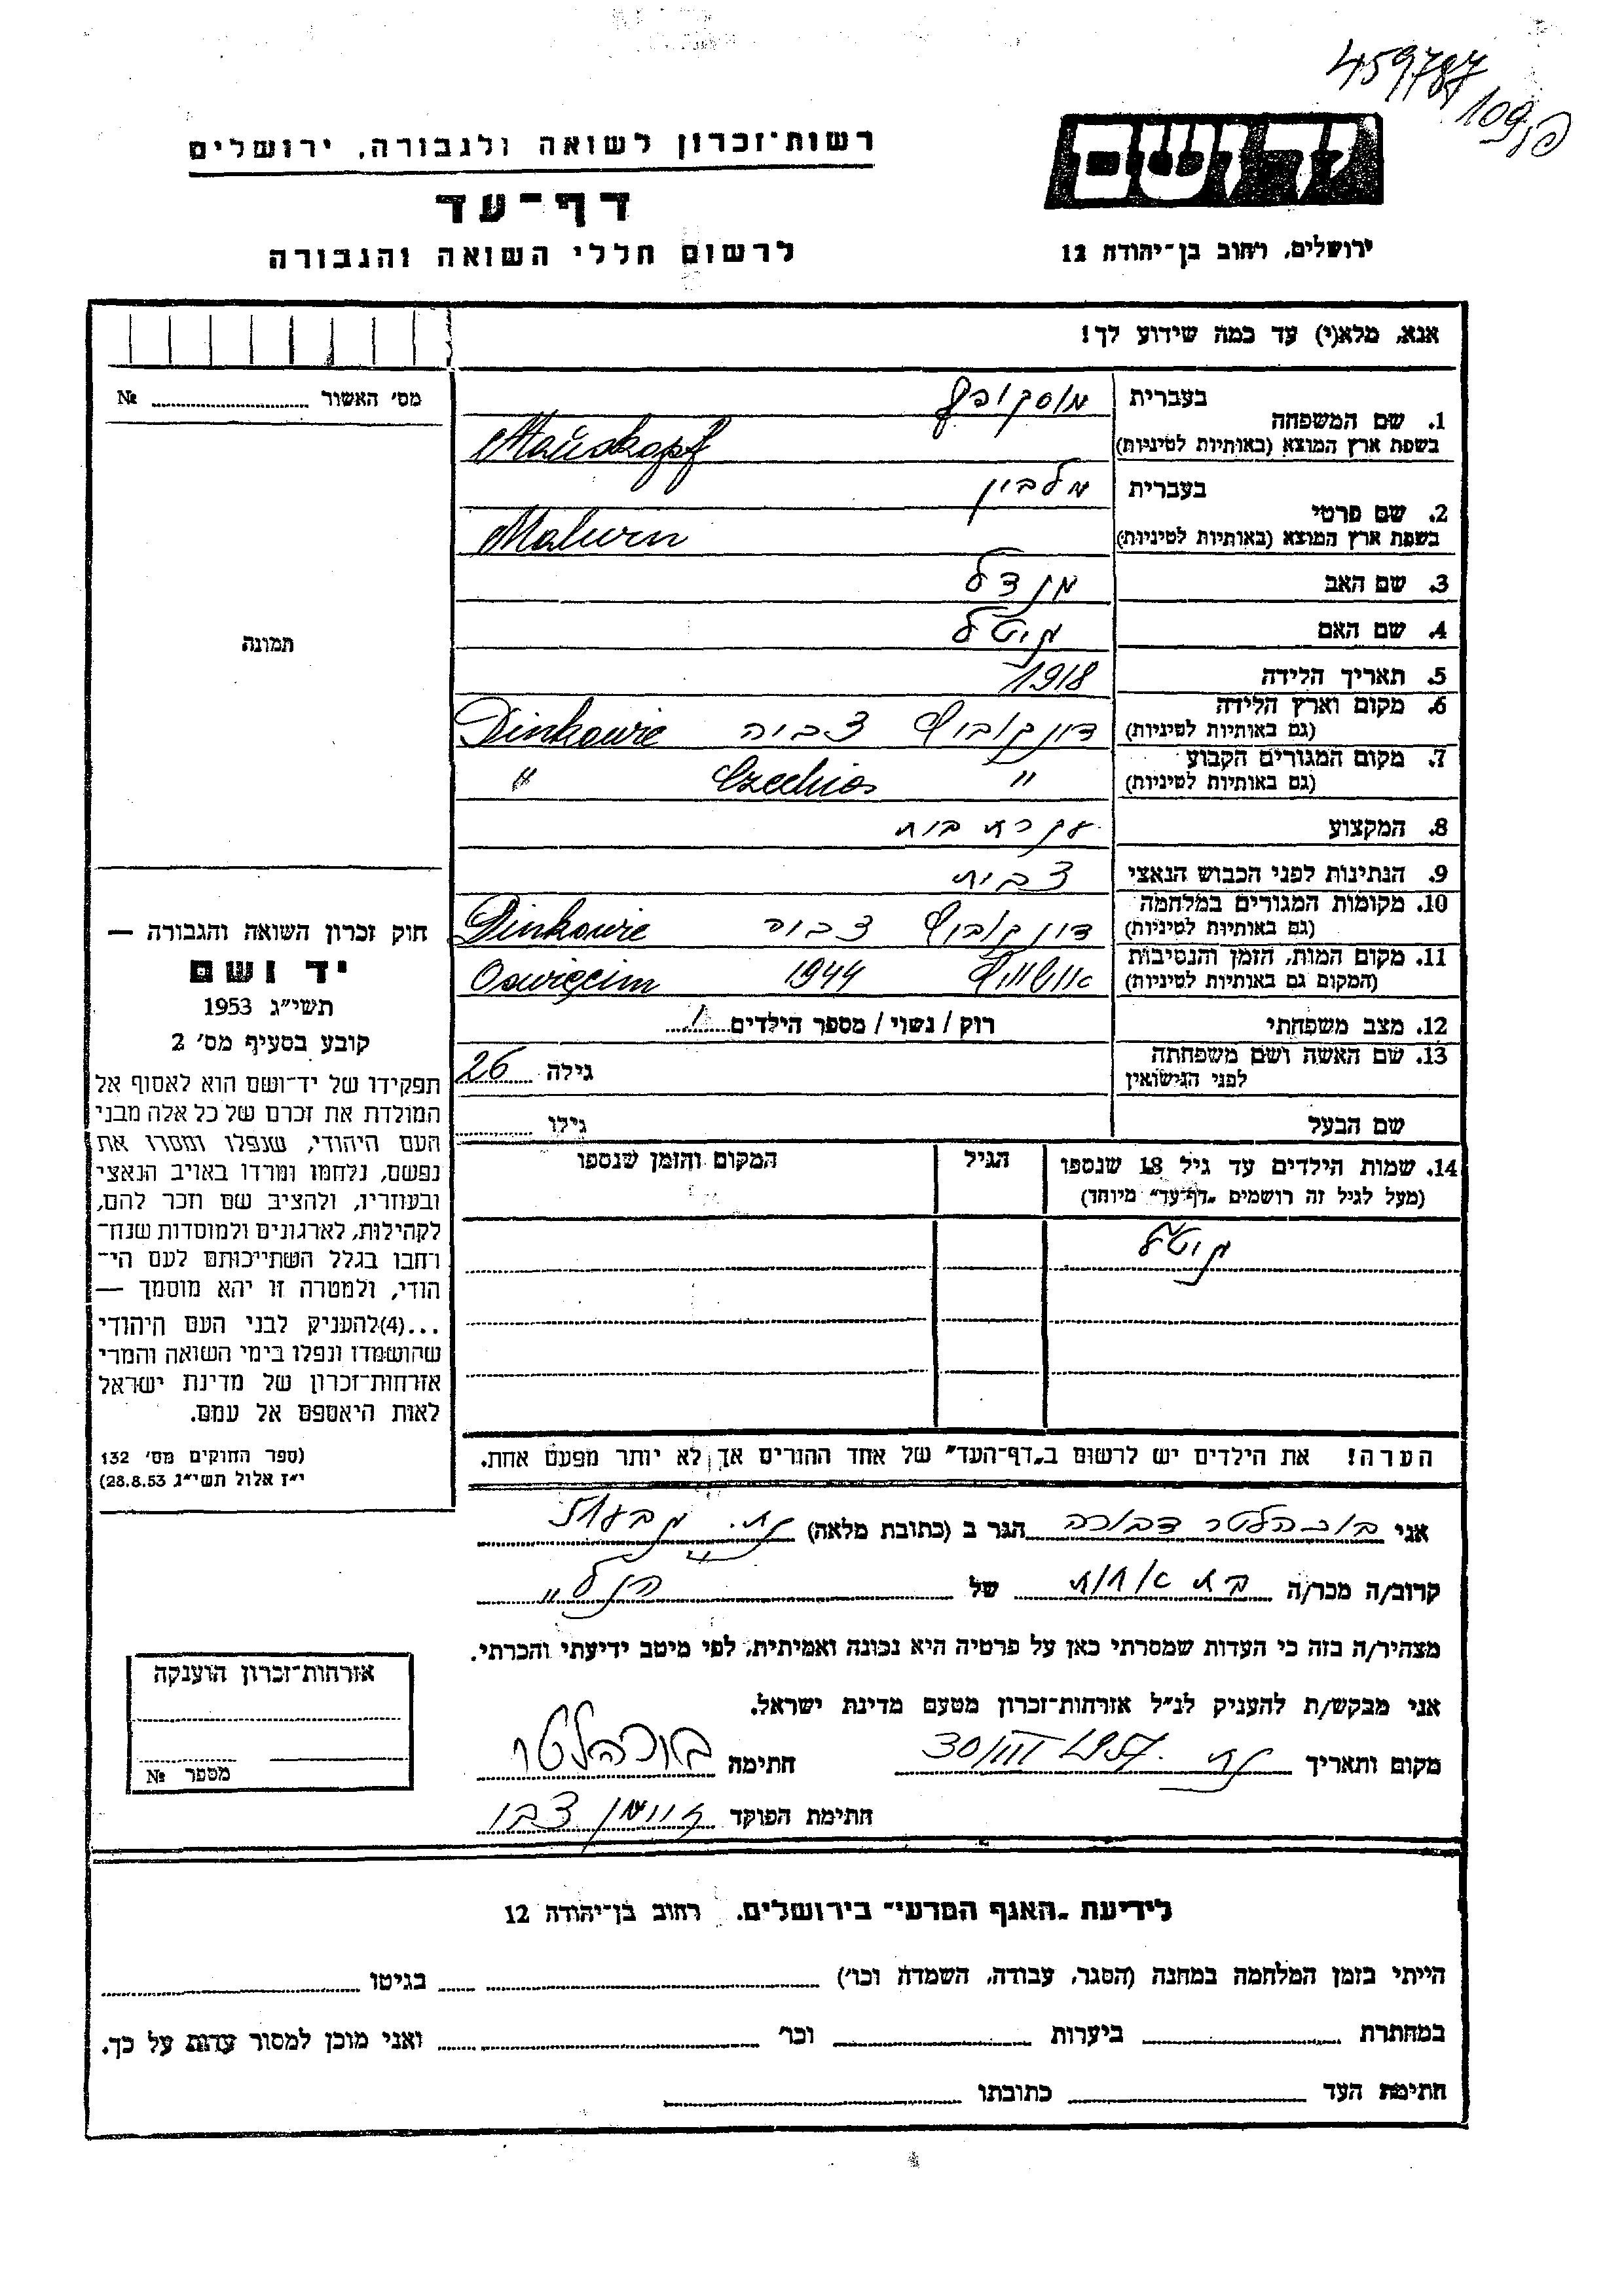 459787
109
רשות־זכרון לשואה ולגבורה, ירושלים
דף־עד
לרשום חללי השואה והגבורה
יד ושם
ירושלים, רחוב בן־יהודה 12
אנא, מלא(י) עד כמה שידוע לך!
מס׳ האשור № 
1. שם המשפחה
בעברית מוסקופף
בשפת ארץ המוצא (באותיות לטיניות) Mauskopf
2. שם פרטי
בעברית מלבין
בשפת ארץ המוצא (באותיות לטיניות) Malwin
3. שם האב מנדל
4. שם האם
5. תאריך הלידה 1918
6. מקום וארץ הלידה
(גם באותיות לטיניות) Dinkowie
7. מקום המגורים הקבוע
(גם באותיות לטיניות) " Czechios "
8. המקצוע עקרת בית
9. הנתינות לפני הכבוש הנאצי
10. מקומות המגורים במלחמה
(גם באותיות לטיניות) Dinkowie
11. מקום המות, הזמן והנסיבות
(המקום גם באותיות לטיניות) אושוויץ 1944 Oswięcim
12. מצב משפחתי רוק / נשוי / מספר הילדים 1
13. שם האשה ושם משפחתה
לפני הנישואין גילה 26
שם הבעל גילו
14. שמות הילדים עד גיל 18 שנספו
(מעל לגיל זה רושמים „דף־עד" מיוחד)
הגיל
המקום והזמן שנספו
תמונה
חוק זכרון השואה והגבורה —
יד ושם
תשי״ג 1953
קובע בסעיף מס׳ 2
תפקידו של יד־ושם הוא לאסוף אל
המולדת את זכרם של כל אלה מבני
העם היהודי, שנפלו ומסרו את
נפשם, נלחמו ומרדו באויב הנאצי
ובעוזריו, ולהציב שם וזכר להם,
לקהילות, לארגונים ולמוסדות שנח־
רחבו בגלל השתייכותם לעם הי־
הודי, ולמטרה זו יהא מוסמך —
...(4)להעניק לבני העם היהודי
שהושמדו ונפלו בימי השואה והמרי
אזרחות־זכרון של מדינת ישראל
לאות היאספם אל עמם.
(ספר החוקים מס׳ 132
י״ז אלול תשי״ג 28.8.53)
הערה! את הילדים יש לרשום ב„דף־העד" של אחד ההורים אך לא יותר מפעם אחת.
אני דבורה הגר ב (כתובת מלאה)
קרוב/ה מכר/ה בת אחות של הנ״ל
מצהיר/ה בזה כי העדות שמסרתי כאן על פרטיה היא נכונה ואמיתית, לפי מיטב ידיעתי והכרתי.
אני מבקש/ת להעניק לנ״ל אזרחות־זכרון מטעם מדינת ישראל.
מקום ותאריך 1957 חתימה
חתימת הפוקד צבי
אזרחות־זכרון הוענקה
מספר №
לידיעת „האגף המדעי" בירושלים, רחוב בן־יהודה 12
הייתי בזמן המלחמה במחנה (הסגר, עבודה, השמדה וכו׳) בגיטו
במחתרת ביערות וכו׳ ואני מוכן למסור עדות על כך.
חתימת העד כתובתו